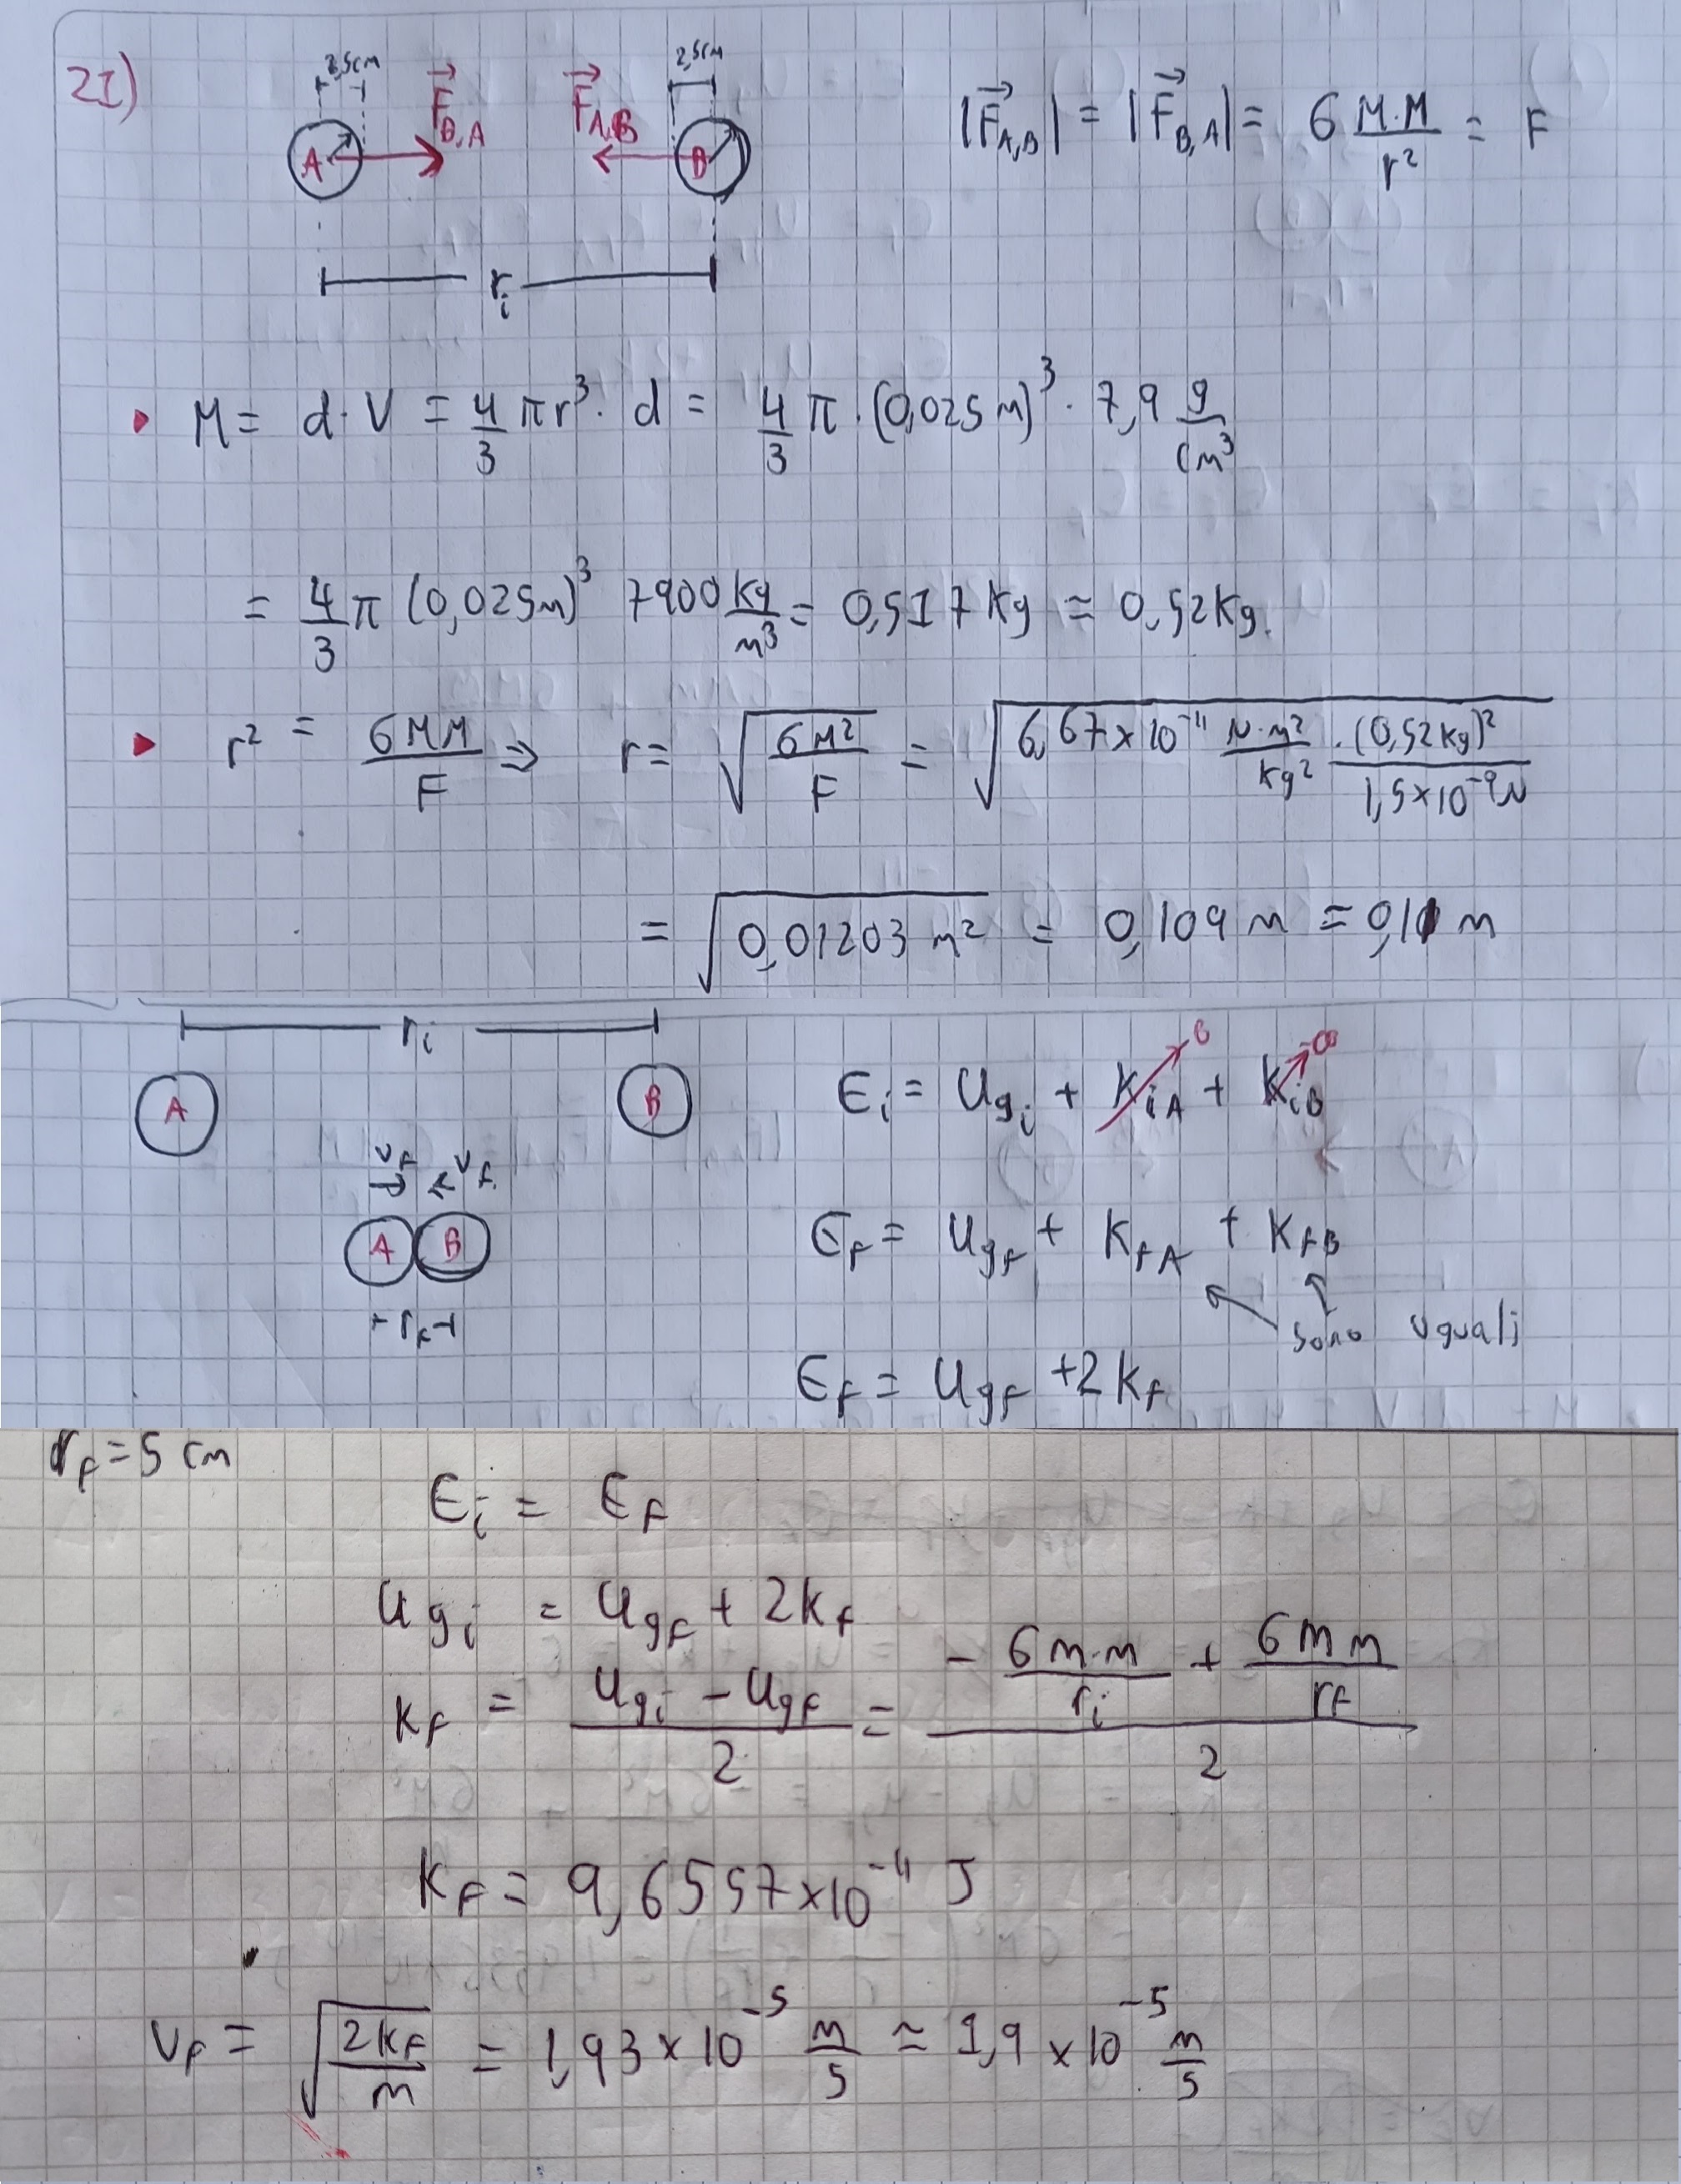 2I)
2,5cm
2,5cm
F⃗_B,A
F⃗_A,B
A
B
|F⃗_A,B| = |F⃗_B,A| = G M·M / r² = F
r_i
• M = d·V = 4/3 πr³· d = 4/3 π·(0,025m)³ · 7,9 g/cm³
= 4/3 π (0,025m)³ 7900 kg/m³ = 0,517 Kg ≈ 0,52Kg.
▸ r² = GMM/F ⇒ r = √(GM²/F) = √(6,67×10⁻¹¹ N·m²/kg² · (0,52kg)²/1,5×10⁻⁹N)
= √(0,01203 m²) = 0,109 m = 0,11 m
r_i
A
B
E_i = U_gi + K_iA + K_iB
0
0
v_f
v_f
A
B
r_f
E_f = U_gf + K_fA + K_fB
sono uguali
E_f = U_gf + 2K_f
r_f = 5 cm
E_i = E_f
U_gi = U_gf + 2K_f
K_f = (U_gi - U_gf)/2 = (- G m·m/r_i + G m m/r_f)/2
K_f = 9,6557×10⁻¹¹ J
v_f = √(2K_f/m) = 1,93×10⁻⁵ m/s ≈ 1,9×10⁻⁵ m/s